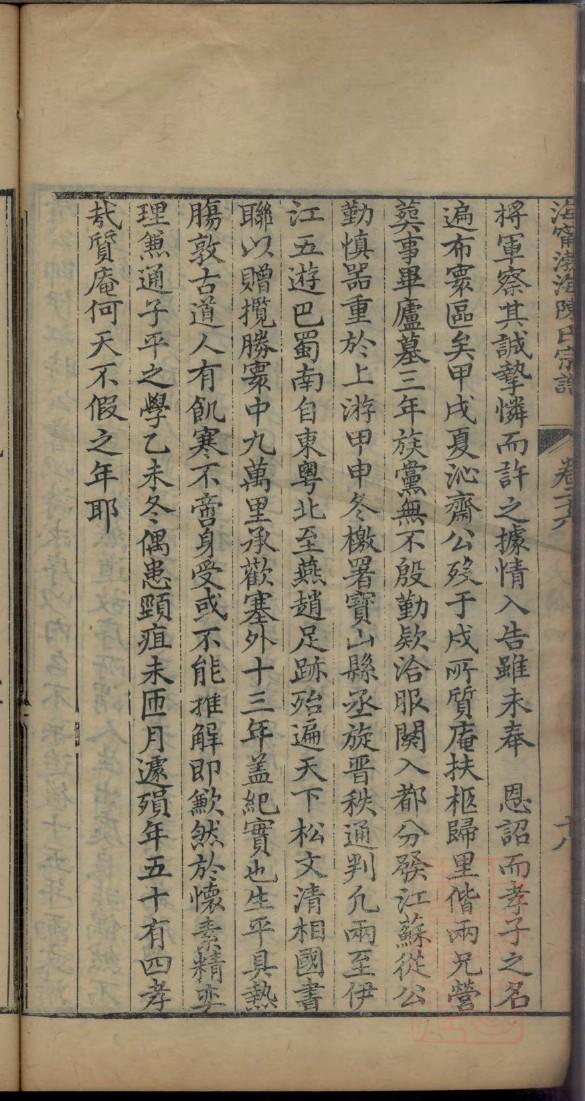 海寧渤海陳氏宗譜 卷二六 十八
將軍察其誠摯憐而許之據情入告雖未奉 恩詔而孝子之名
遍布寰區矣甲戌夏沁齋公歿于戍所質庵扶柩歸里偕兩兄營
葬事畢廬墓三年族黨無不殷勤欵洽服闋入都分發江蘇從公
勤慎器重於上游甲申冬檄署寶山縣丞旋晉秩通判凢兩至伊
江五遊巴蜀南自東粤北至燕趙足跡殆遍天下松文清相國書
聯以贈攬勝寰中九萬里承歡塞外十三年盖紀實也生平具熱
腸敦古道人有飢寒不啻身受或不能推解即歉然於懷素精奕
理兼通子平之學乙未冬偶患頸疽未匝月遽殞年五十有四孝
哉質庵何天不假之年耶